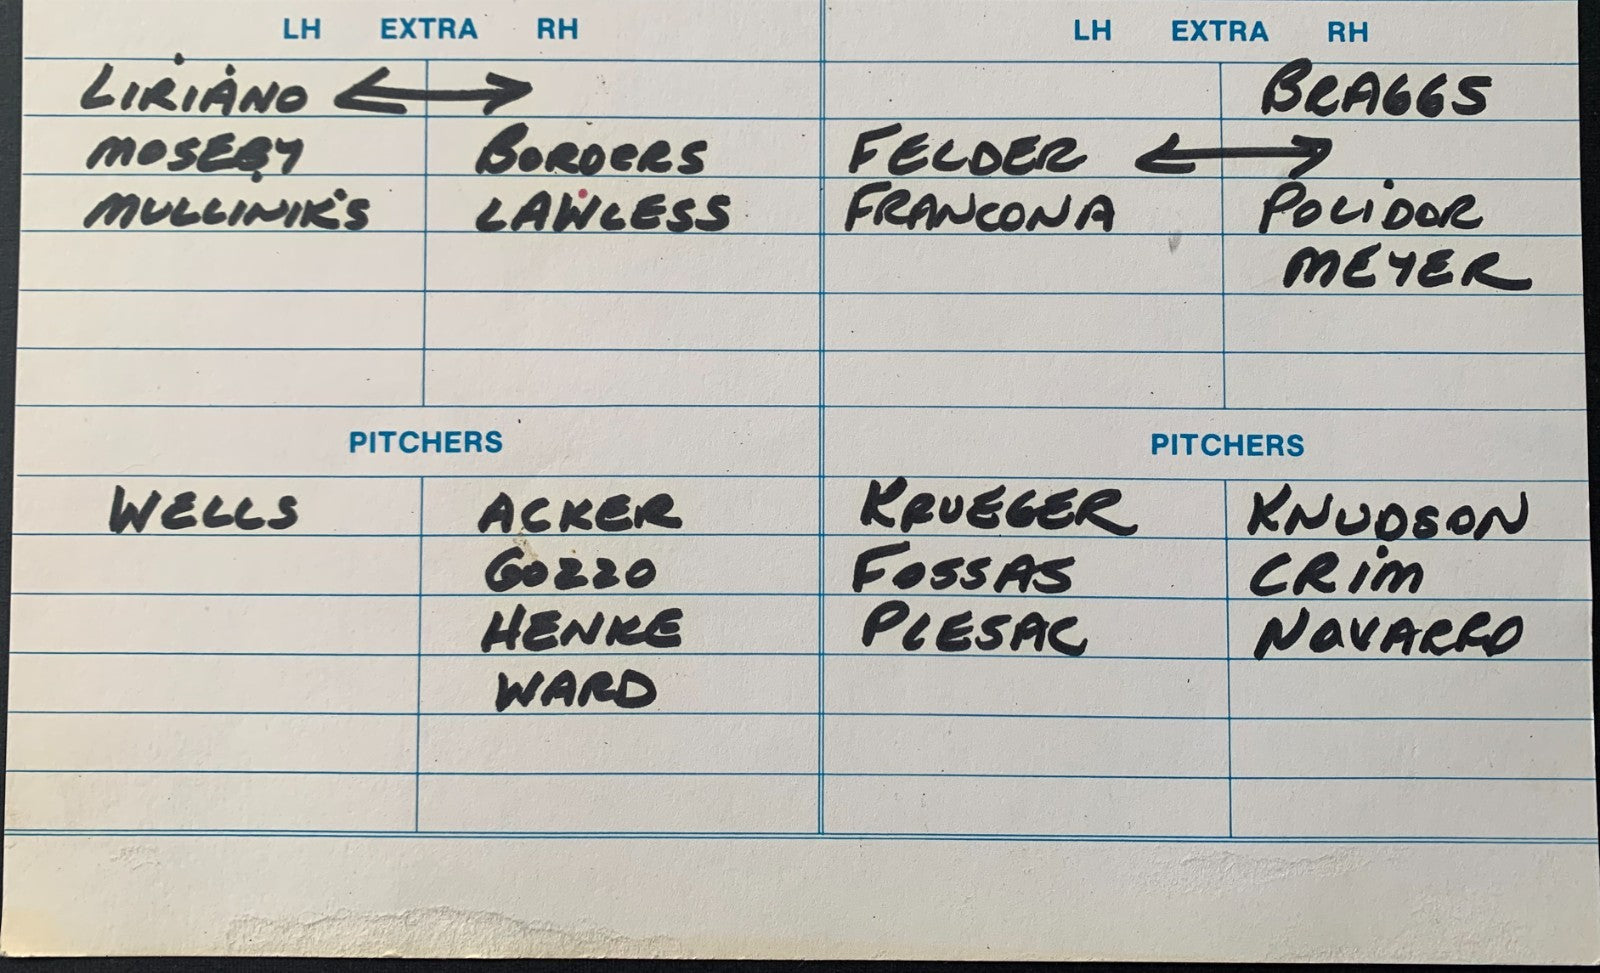 LH EXTRA RH LH EXTRA RH
LIRIANO BRAGGS
MOSEBY BORDERS FELDER
MULLINIKS LAWLESS FRANCONA POLIDOR
MEYER
PITCHERS PITCHERS
WELLS ACKER KRUEGER KNUDSON
GOZZO FOSSAS CRIM
HENKE PLESAC NAVARRO
WARD